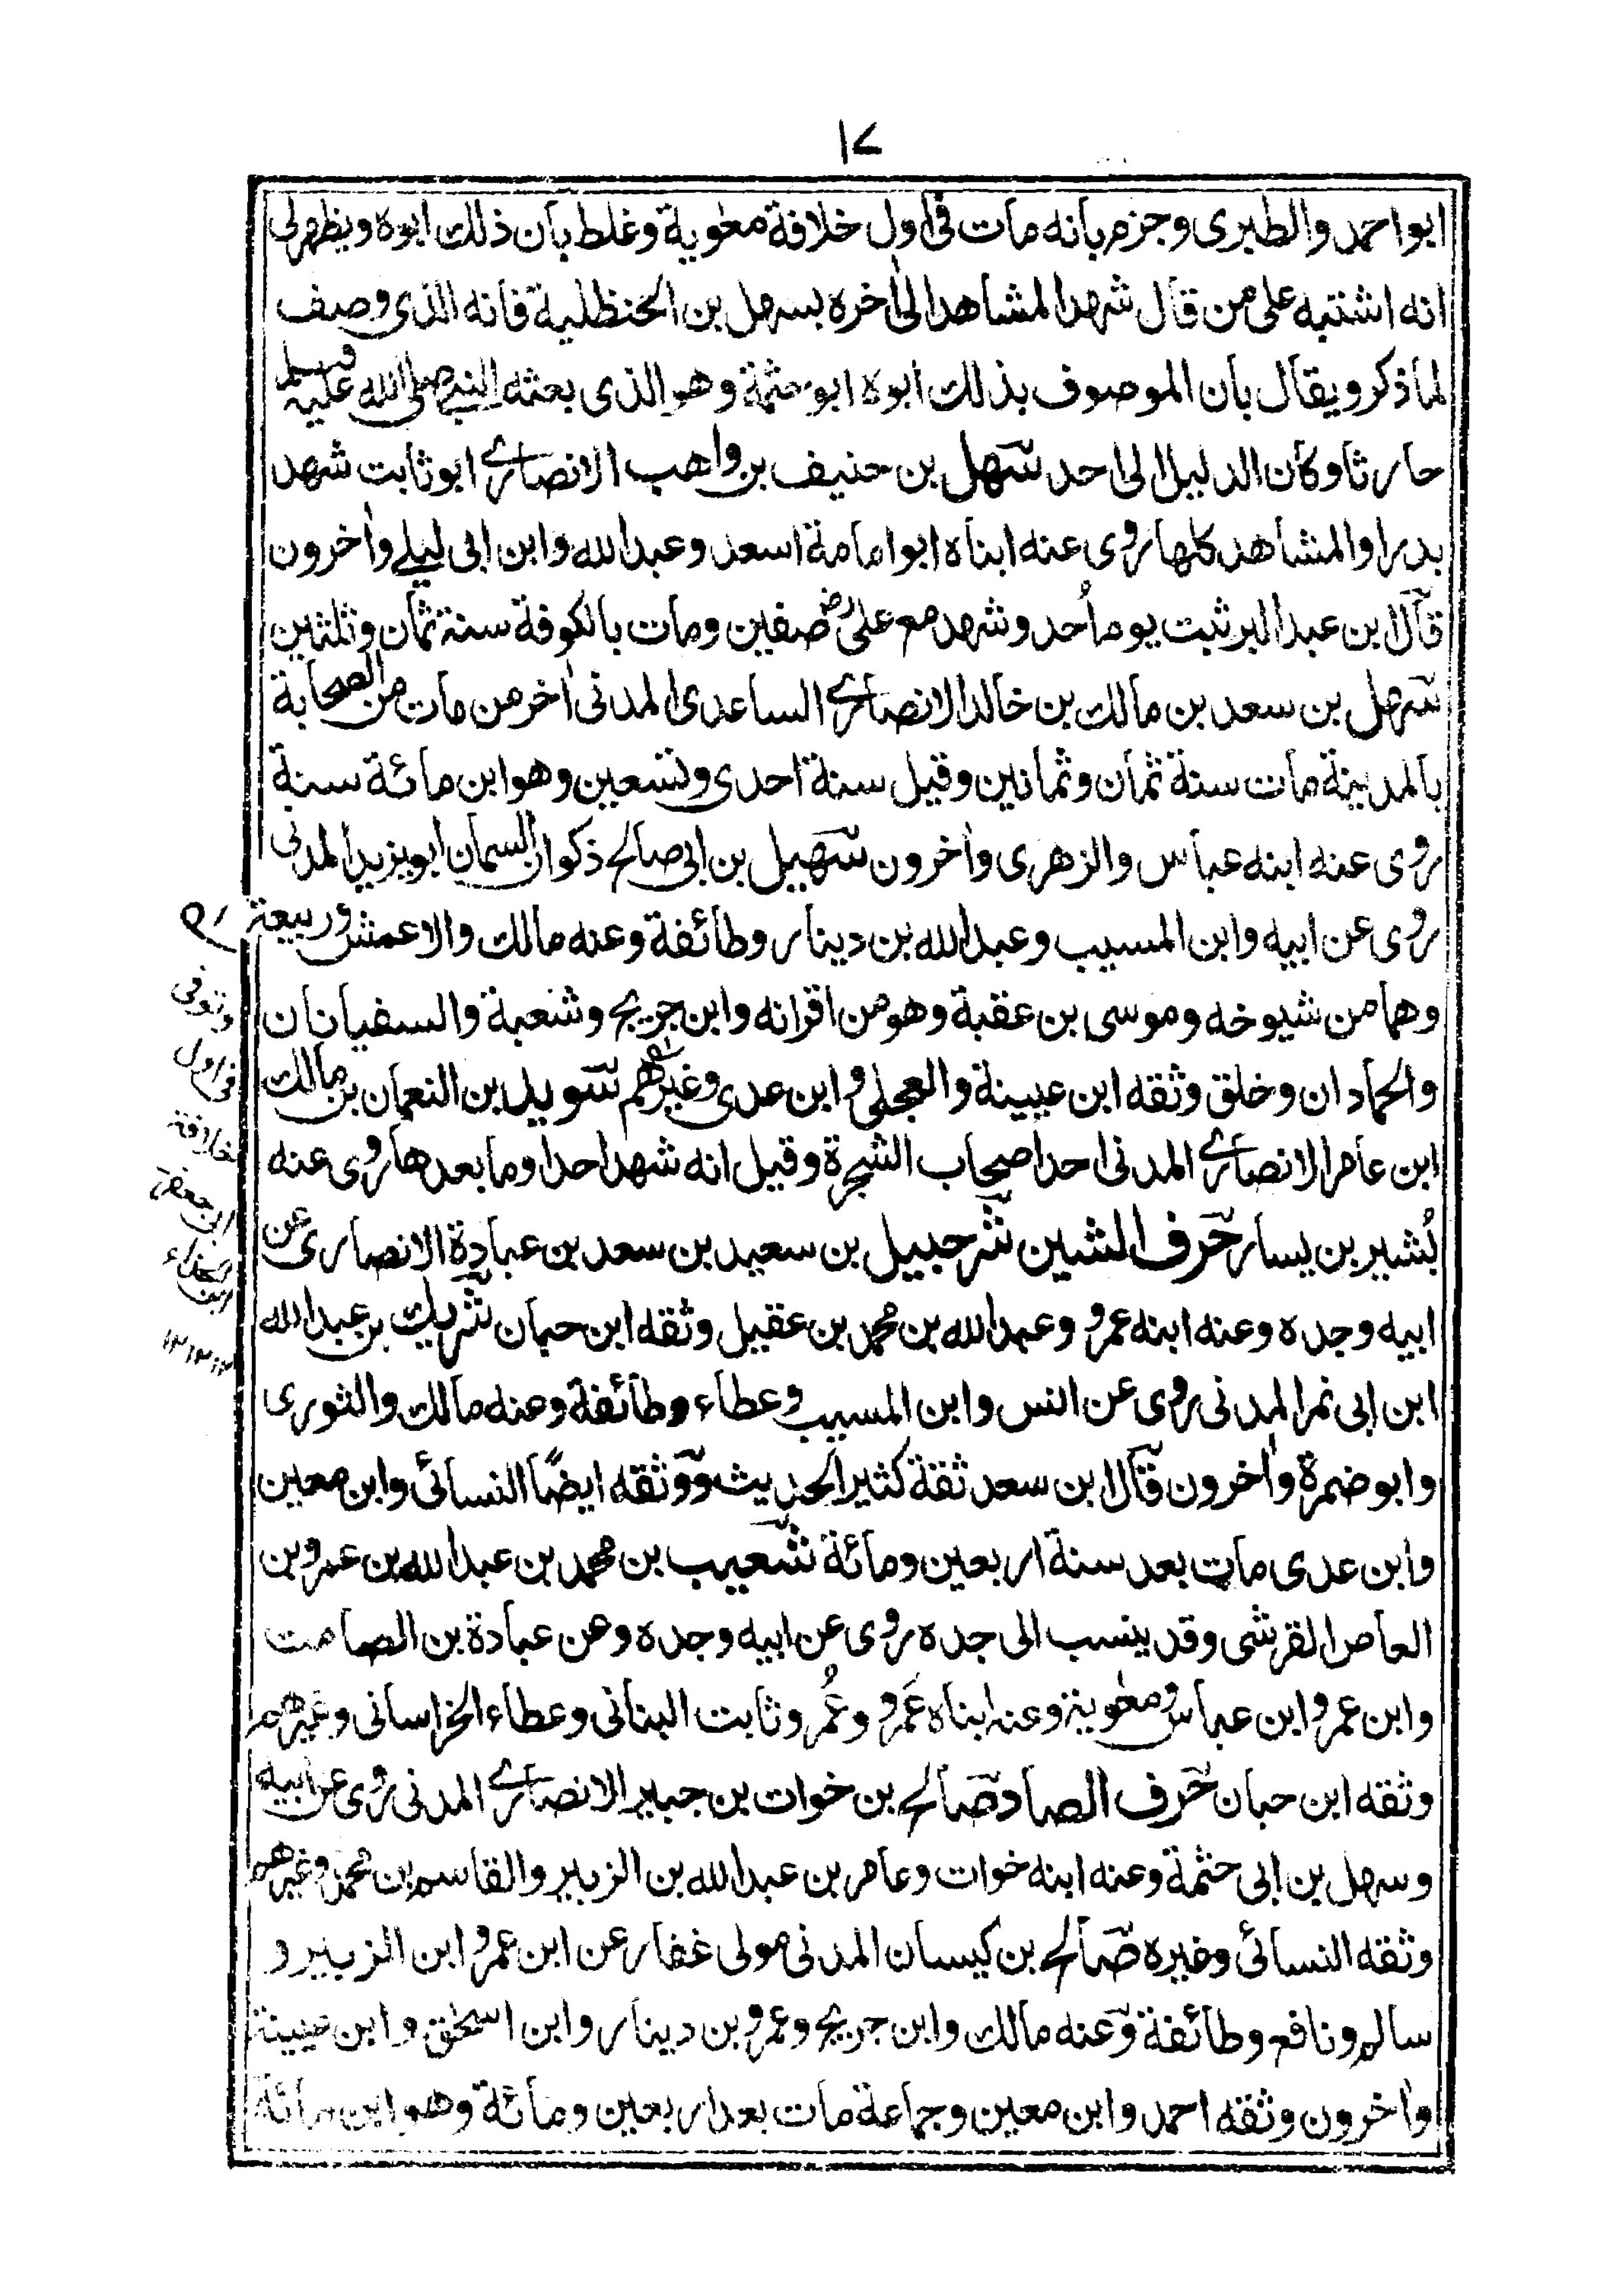 ١٧
ابو احمد والطبرى وجزم بانه مات فى اول خلافة معٰوية وغلط بان ذلك ابوه ويظهر لى
انه اشتبه على من قال شهد المشاهد الى اٰخره بسهل بن الحنظلية فانه الذى وصف
لما ذكر ويقال بان الموصوف بذلك ابوه ابو حثمة وهو الذى بعثه النبى صلى الله عليه وسلم
حارثا وكان الدليل الى احد سهل بن حنيف بن واهب الانصارے ابو ثابت شهد
بدرا والمشاهد كلها روى عنه ابناه ابو امامة اسعد وعبد الله وابن ابى ليلے واٰخرون
قال ابن عبد البر ثبت يوم اُحد وشهد مع على رض صفين ومات بالكوفة سنة ثمان وثلثين
سهل بن سعد بن مالك بن خالد الانصارے الساعدى المدنى اٰخر من مات من الصحابة
بالمدينة مات سنة ثمان وثمانين وقيل سنة احدى وتسعين وهو ابن مائة سنة
روى عنه ابنه عباس والزهرى واٰخرون سهيل بن ابى صالح ذكوان السمان ابو يزيد المدنى
روى عن ابيه وابن المسيب وعبد الله بن دينار وطائفة وعنه مالك والاعمش وربيعة
وهما من شيوخه وموسى بن عقبة وهو من اقرانه وابن جريج وشعبة والسفيانان
والحمادان وخلق وثقه ابن عيينة والعجلى وابن عدى وغيرهم سويد بن النعمان بن مالك
ابن عامر الانصارے المدنى احد اصحاب الشجرة وقيل انه شهد احدا وما بعدها روى عنه
بُشير بن يسار حرف الشين شرحبيل بن سعيد بن سعد بن عبادة الانصارى عن
ابيه وجده وعنه ابنه عمرو وعبد الله بن محمد بن عقيل وثقه ابن حبان شريك بن عبد الله
ابن ابى نمر المدنى روى عن انس وابن المسيب وعطاء وطائفة وعنه مالك والثورى
وابو ضمرة واٰخرون قال ابن سعد ثقة كثير الحديث ووثقه ايضًا النسائى وابن معين
وابن عدى مات بعد سنة اربعين ومائة شعيب بن محمد بن عبد الله بن عمرو بن
العاص القرشى وقد ينسب الى جده روى عن ابيه وجده وعن عبادة بن الصامت
وابن عمرو ابن عباس ومعٰوية وعنه ابناه عَمرو وعُمر وثابت البنانى وعطاء الخراسانى وغيرهم
وثقه ابن حبان حرف الصاد صالح بن خوات بن جبير الانصارے المدنى روى عن ابيه
وسهل بن ابى حثمة وعنه ابنه خوات وعامر بن عبد الله بن الزبير والقاسم بن محمد وغيرهم
وثقه النسائى وغيره صالح بن كيسان المدنى مولى غفار عن ابن عمرو ابن الزبير و
سالم ونافع وطائفة وعنه مالك وابن جريج وعمرو بن دينار وابن اسحٰق وابن عيينة
واٰخرون وثقه احمد وابن معين وجماعة مات بعد اربعين ومائة وهو ابن مائة
وتوفى
فى اول
خلافة
ابى جعفر
١٢ ١٢ ١٢